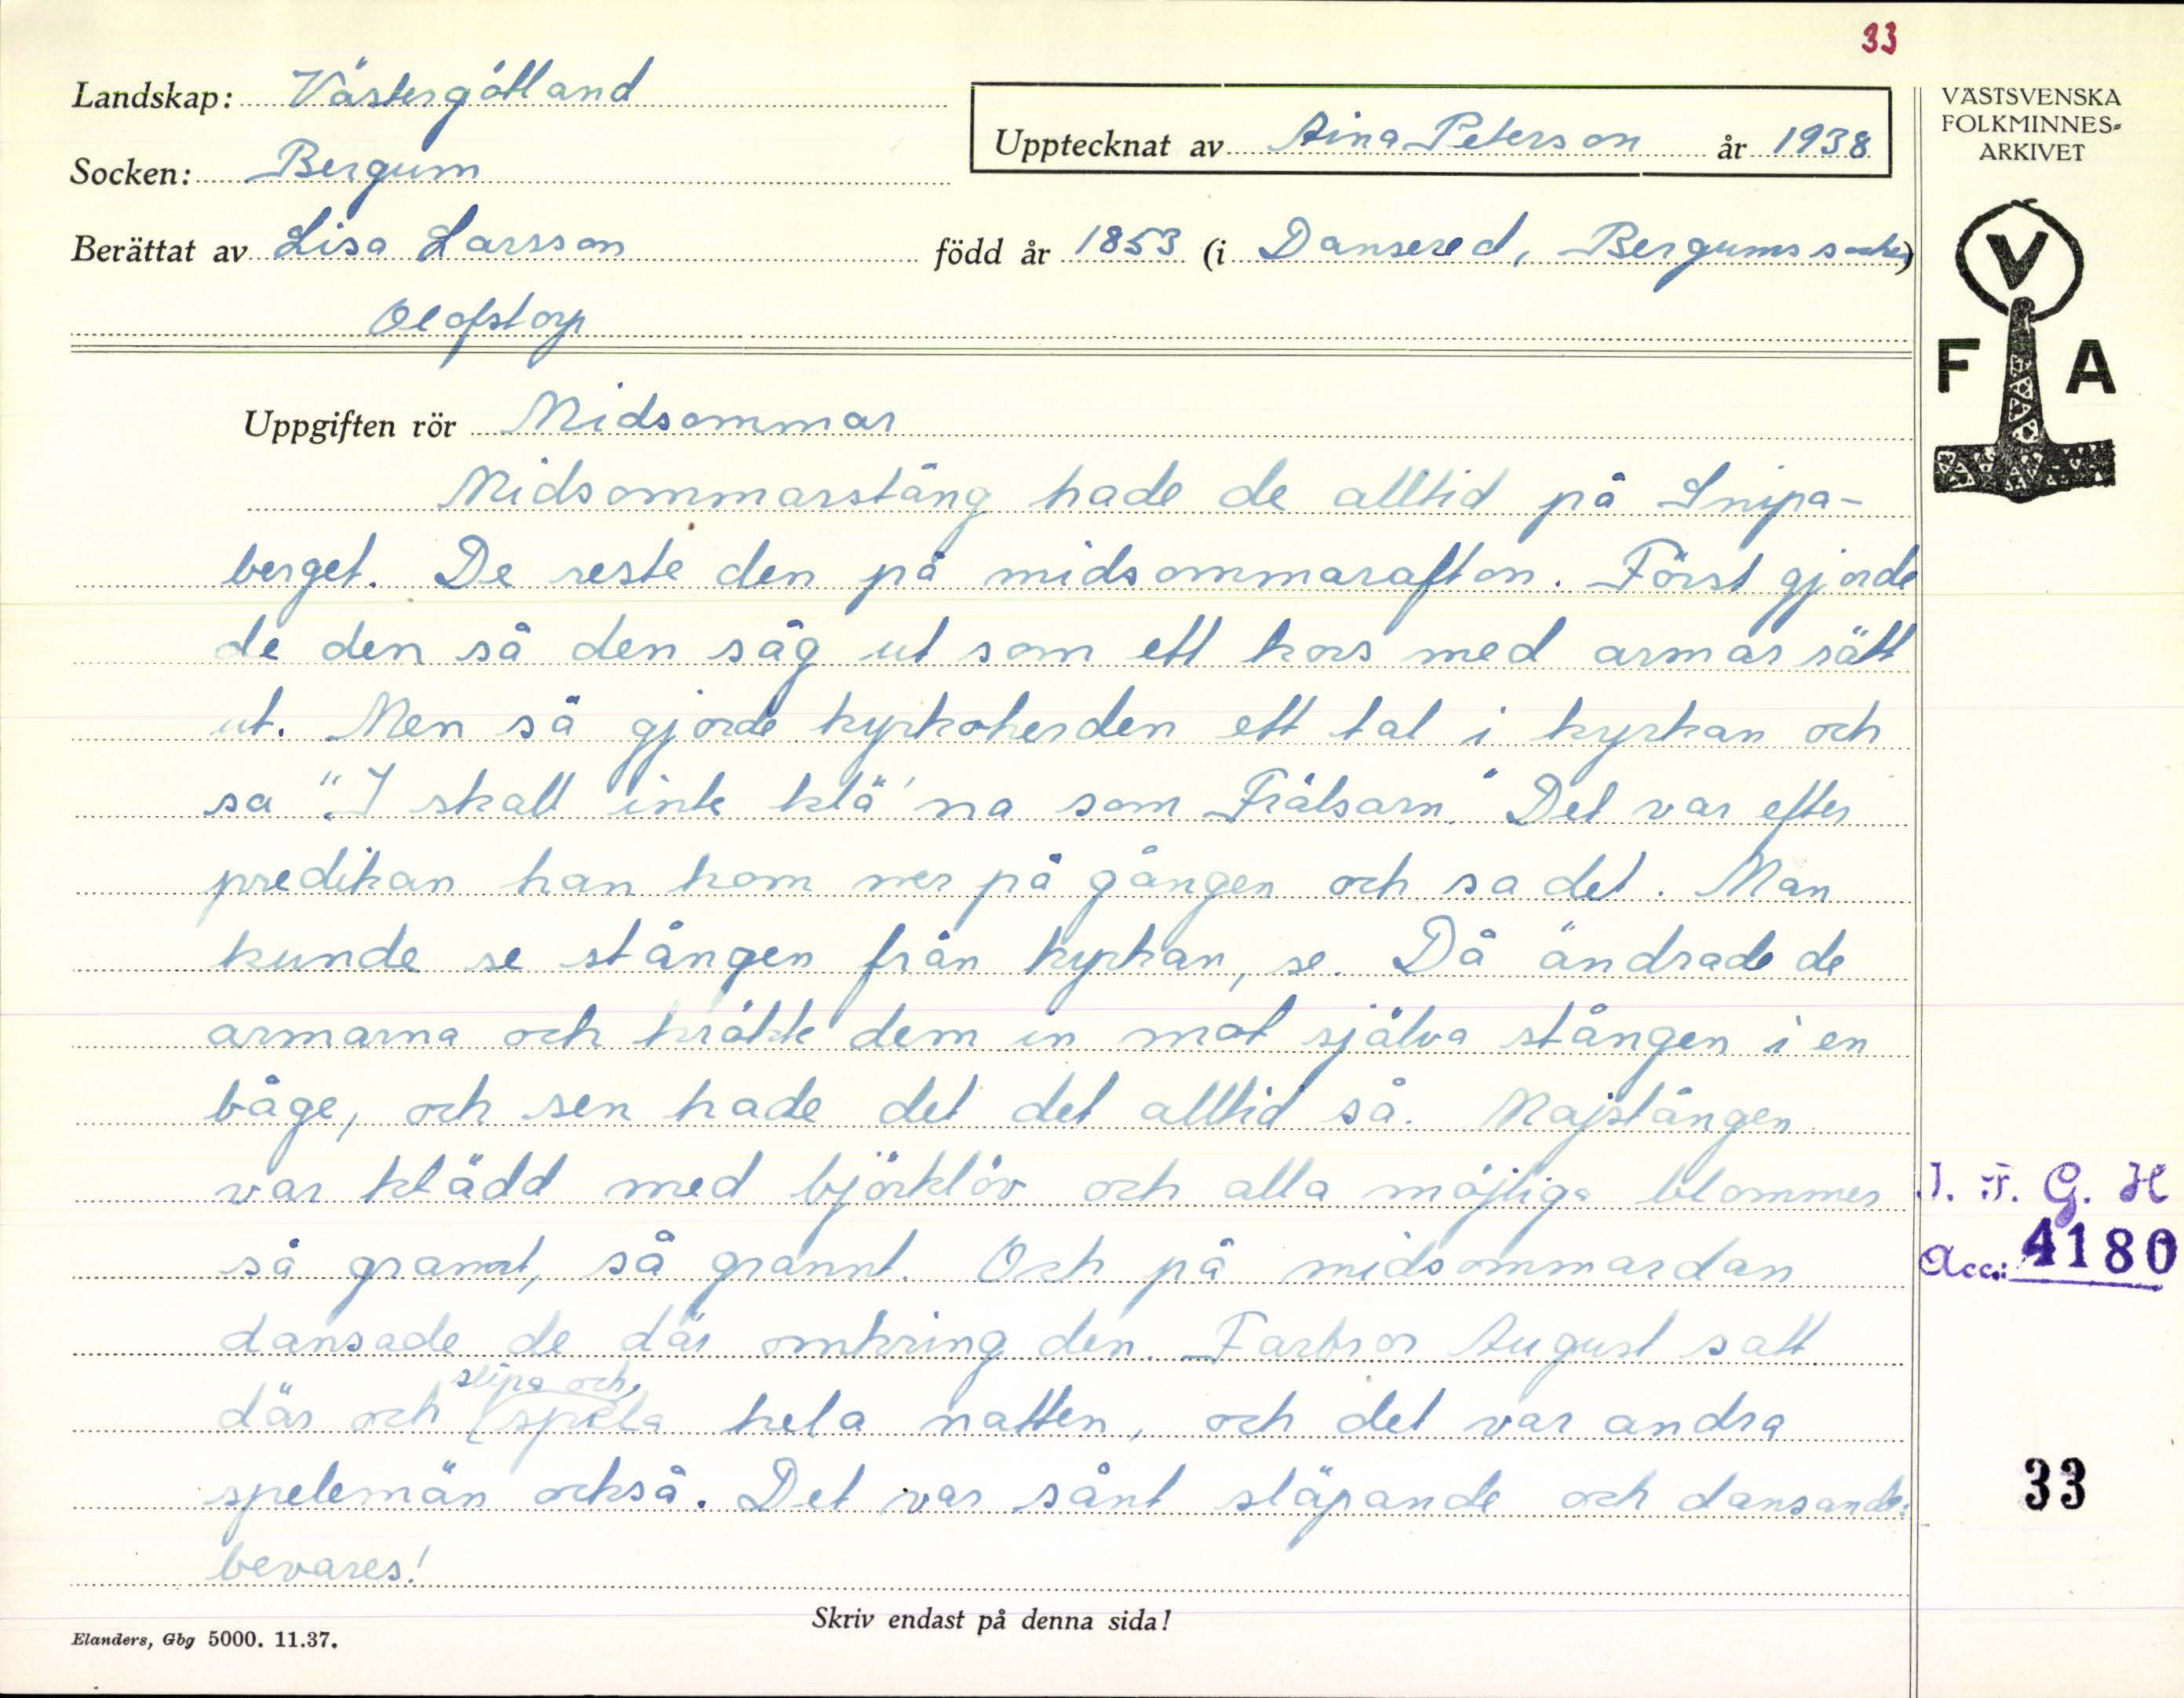 33
Landskap: Västergötland
Upptecknat av Aina Peterson år 1938
VÄSTSVENSKA
FOLKMINNES-
ARKIVET
Socken: Bergum
Berättat av Lisa Larsson född år 1853 (i Dansered, Bergums socken)
Olofstorp
V
F A
Uppgiften rör Midsommar
Midsommarstång hade de alltid på Snipa-
berget. De reste den på midsommarafton. Först gjorde
de den så den såg ut som ett kors med armar rätt
ut. Men så gjorde kyrkoherden ett tal i kyrkan och
sa "I skall inte klä'na som Frälsarn." Det var efter
predikan han kom ner på gången och sa det. Man
kunde se stången från kyrkan, se. Då ändrade de
armarna och krökte dem in mot själva stången i en
båge, och sen hade det det alltid så. Majstången
var klädd med björklöv och alla möjliga blommer
så grannt, så grannt. Och på midsommardan
dansade de där omkring den. Farbror August satt
slipa och
där och spela hela natten, och det var andra
spelemän också. Det var sånt släpande och dansande:
bevares!
I. F. G. H
Acc.: 4180
33
Skriv endast på denna sida!
Elanders, Gbg 5000. 11.37.